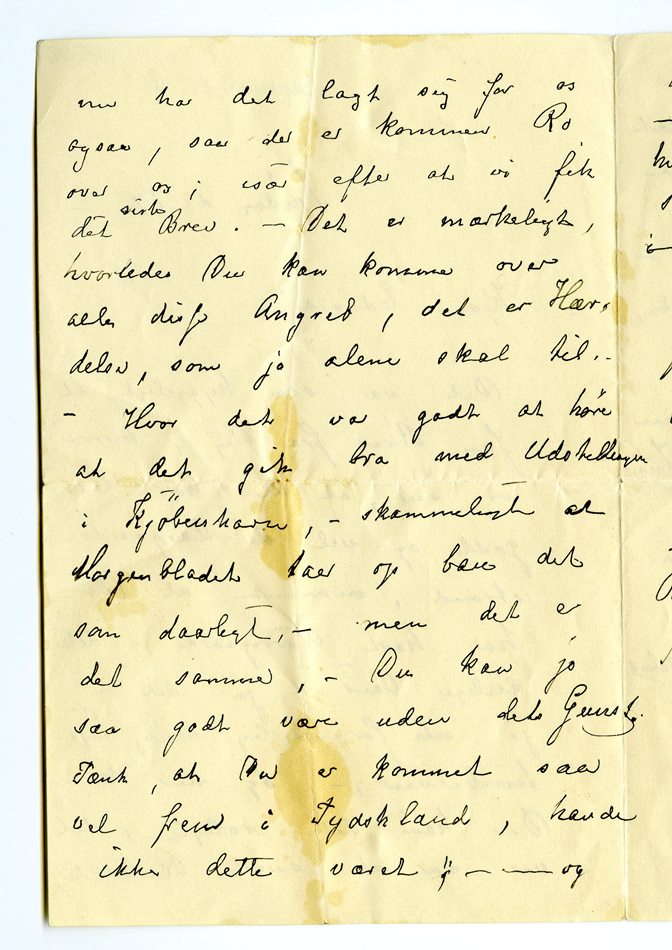 nu har det lagt sig for os
ogsaa, saa der er kommen Ro
over os, især efter at vi fik
det sidste Brev. – Det er mærkeligt,
hvorledes Du kan komme over
alle disse Angreb, det er Hær-
delse, som jo alene skal til. –
– Hvor det var godt at høre
at det gik bra med Udstillingen
i Kjöbenhavn, – skammeligt at
Morgenbladet taer op bare det
som daarligt, – men det er
det samme, – Du kan jo
saa godt være uden dets Gunst.
Tænk, at Du er kommet saa
vel frem i Tydskland, havde
ikke dette været – — og